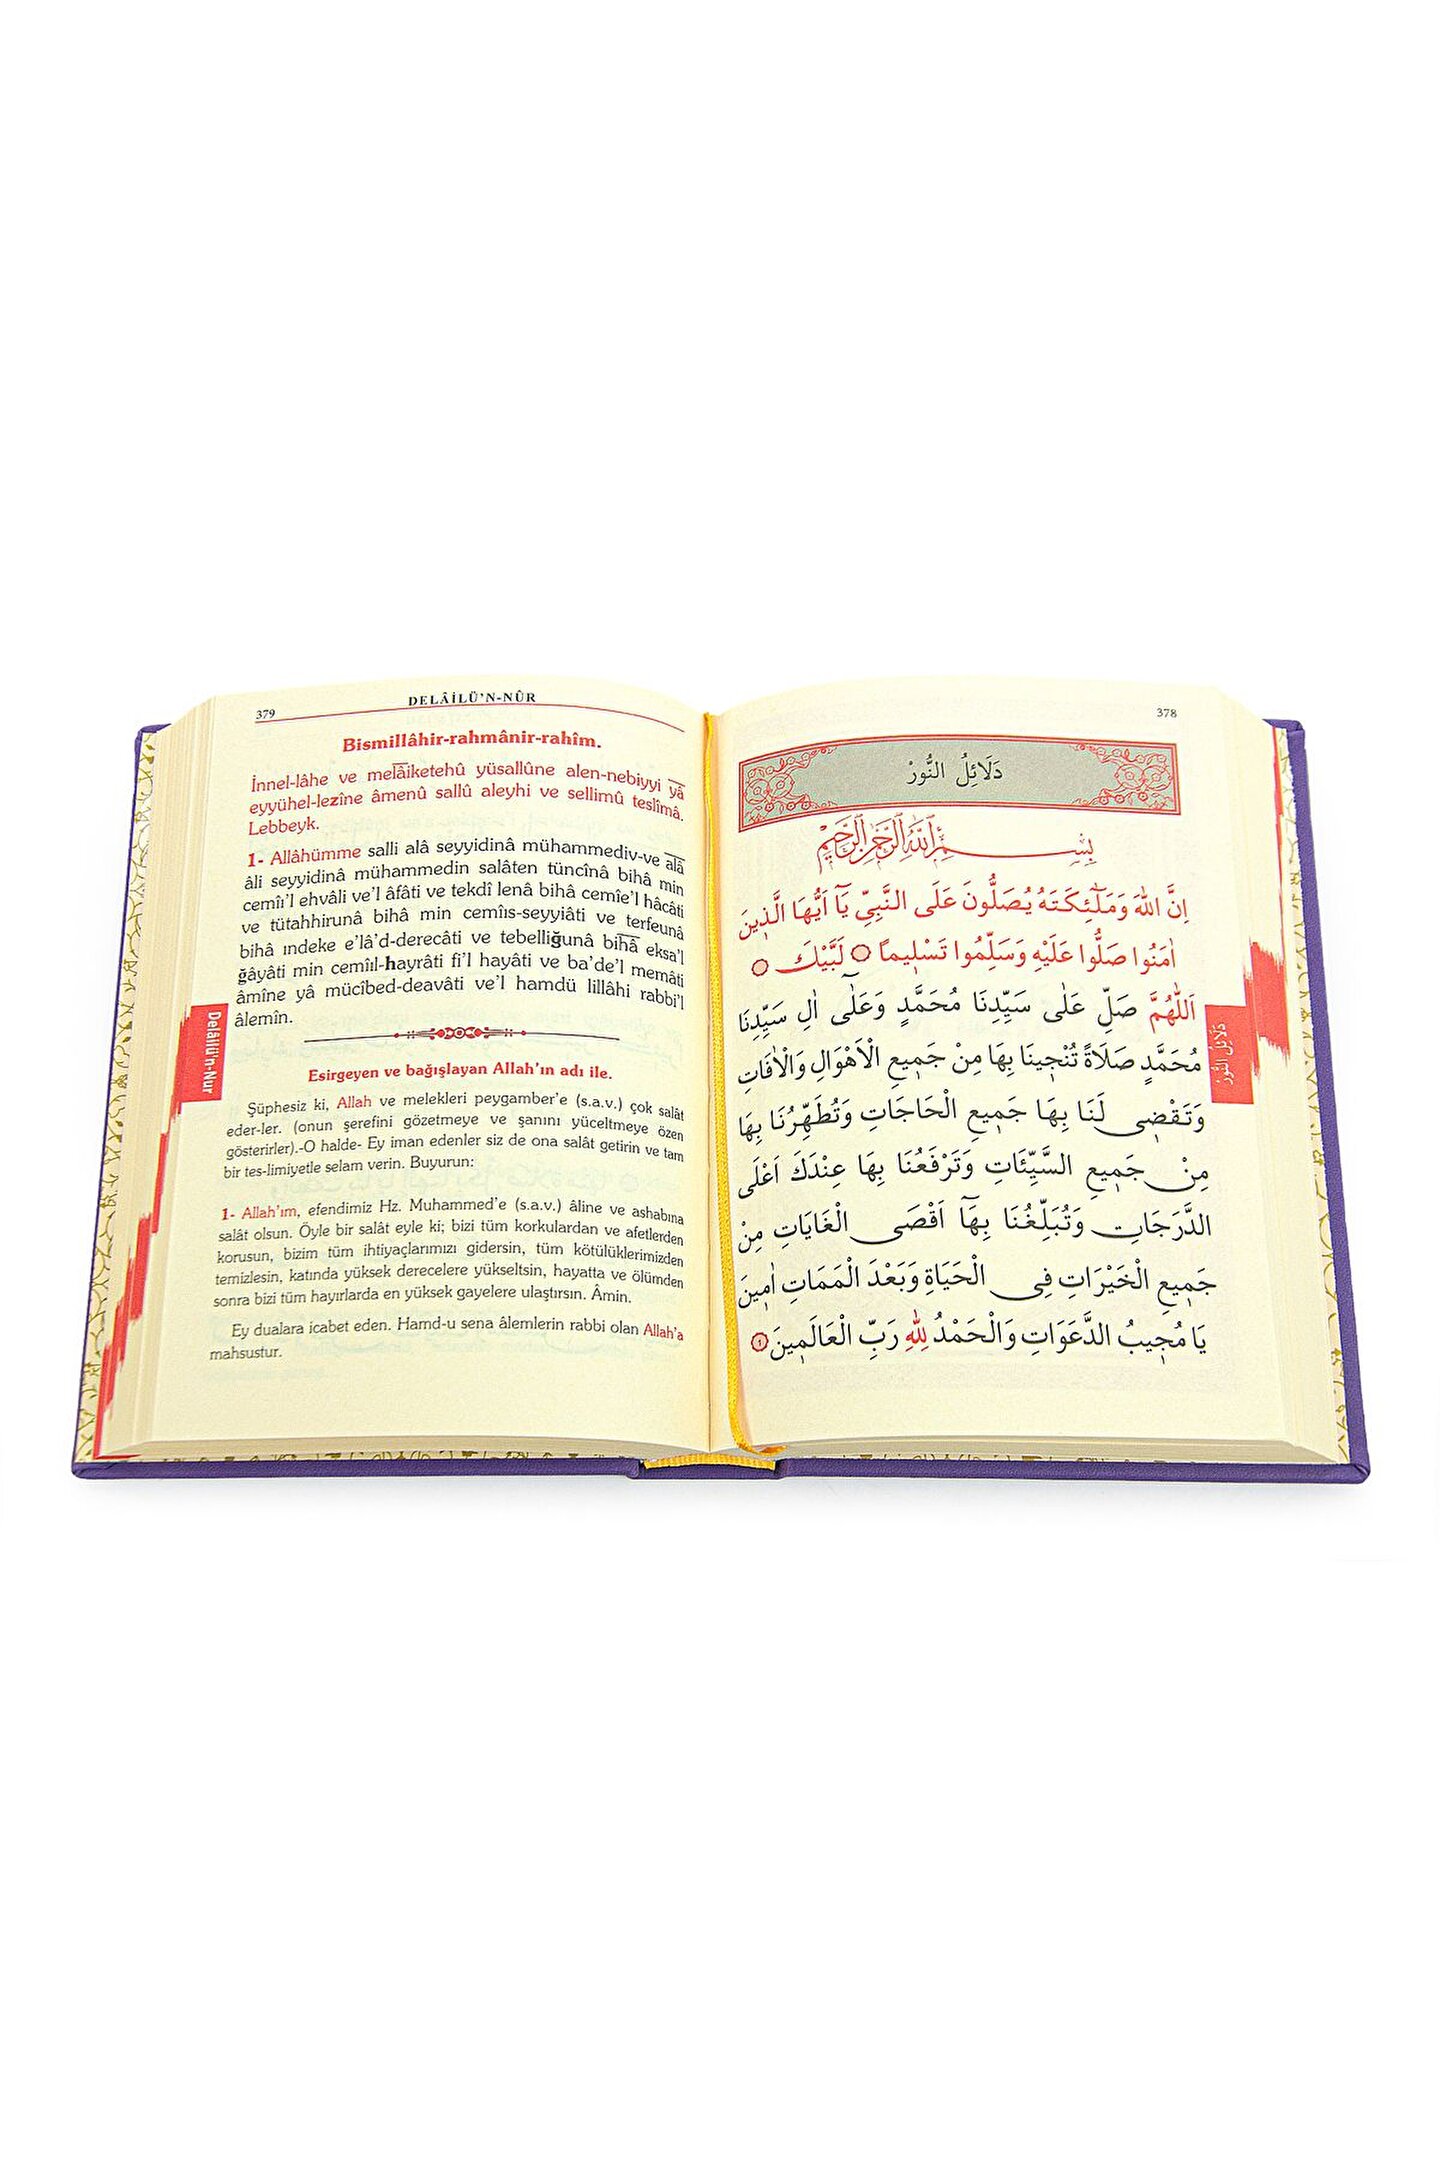 379
DELÂİLÜ'N-NÛR
Bismillâhir-rahmânir-rahîm.
İnnel-lâhe ve melâiketehû yüsallûne alen-nebiyyi yâ
eyyühel-lezîne âmenû sallû aleyhi ve sellimû teslîmâ.
Lebbeyk.
1- Allâhümme salli alâ seyyidinâ mühammediv-ve alâ
âli seyyidinâ mühammedin salâten tüncînâ bihâ min
cemîı'l ehvâli ve'l âfâti ve tekdî lenâ bihâ cemîe'l hâcâti
ve tütahhirunâ bihâ min cemîıs-seyyiâti ve terfeunâ
bihâ ındeke e'lâ'd-derecâti ve tebelliğunâ bihâ eksa'l
ğâyâti min cemîıl-hayrâti fi'l hayâti ve ba'de'l memâti
âmîne yâ mücîbed-deavâti ve'l hamdü lillâhi rabbi'l
âlemîn.
Esirgeyen ve bağışlayan Allah'ın adı ile.
Şüphesiz ki, Allah ve melekleri peygamber'e (s.a.v.) çok salât
eder-ler. (onun şerefini gözetmeye ve şanını yüceltmeye özen
gösterirler).-O halde- Ey iman edenler siz de ona salât getirin ve tam
bir tes-limiyetle selam verin. Buyurun:
1- Allah'ım, efendimiz Hz. Muhammed'e (s.a.v.) âline ve ashabına
salât olsun. Öyle bir salât eyle ki; bizi tüm korkulardan ve afetlerden
korusun, bizim tüm ihtiyaçlarımızı gidersin, tüm kötülüklerimizden
temizlesin, katında yüksek derecelere yükseltsin, hayatta ve ölümden
sonra bizi tüm hayırlarda en yüksek gayelere ulaştırsın. Âmin.
Ey dualara icabet eden. Hamd-u sena âlemlerin rabbi olan Allah'a
mahsustur.
Delâilü'n-Nur
378
دَلَائِلُ النُّورْ
بِسْمِ اللّٰهِ الرَّحْمٰنِ الرَّحِيمِ
اِنَّ اللّٰهَ وَمَلٰٓئِكَتَهُ يُصَلُّونَ عَلَى النَّبِيِّ يَٓا اَيُّهَا الَّذِينَ
اٰمَنُوا صَلُّوا عَلَيْهِ وَسَلِّمُوا تَسْلِيماً ۝ لَبَّيْكَ ۝
اَللّٰهُمَّ صَلِّ عَلٰى سَيِّدِنَا مُحَمَّدٍ وَعَلٰٓى اٰلِ سَيِّدِنَا
مُحَمَّدٍ صَلَاةً تُنْجِينَا بِهَا مِنْ جَمِيعِ الْاَهْوَالِ وَالْاٰفَاتِ
وَتَقْضِى لَنَا بِهَا جَمِيعِ الْحَاجَاتِ وَتُطَهِّرُنَا بِهَا
مِنْ جَمِيعِ السَّيِّئَاتِ وَتَرْفَعُنَا بِهَا عِنْدَكَ اَعْلَى
الدَّرَجَاتِ وَتُبَلِّغُنَا بِهَٓا اَقْصَى الْغَايَاتِ مِنْ
جَمِيعِ الْخَيْرَاتِ فِى الْحَيَاةِ وَبَعْدَ الْمَمَاتِ اٰمِينَ
يَا مُجِيبُ الدَّعَوَاتِ وَالْحَمْدُ لِلّٰهِ رَبِّ الْعَالَمِينَ ١
دَلَائِلُ النُّورْ